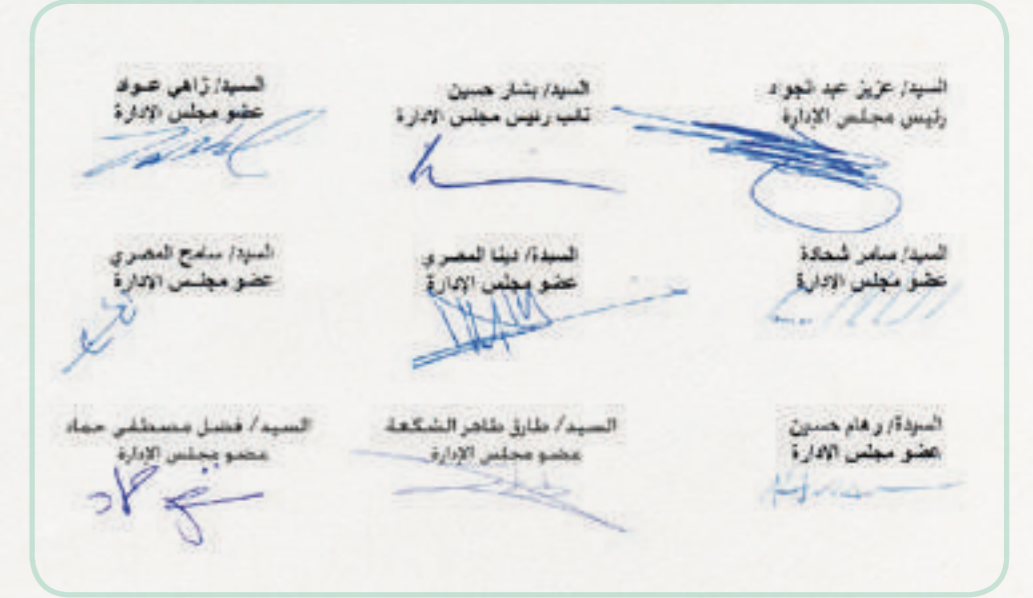 السيد/ عزيز عبد الجواد
رئيس مجلس الإدارة
السيد/ بشار حسين
نائب رئيس مجلس الإدارة
السيد/ زاهي عواد
عضو مجلس الإدارة
السيد/ سامر شحادة
عضو مجلس الإدارة
السيدة/ دينا المصري
عضو مجلس الإدارة
السيد/ سامح المصري
عضو مجلس الإدارة
السيدة/ رهام حسين
عضو مجلس الادارة
السيد/ طارق طاهر الشكعة
عضو مجلس الإدارة
السيد/ فضل مصطفى حماد
عضو مجلس الإدارة